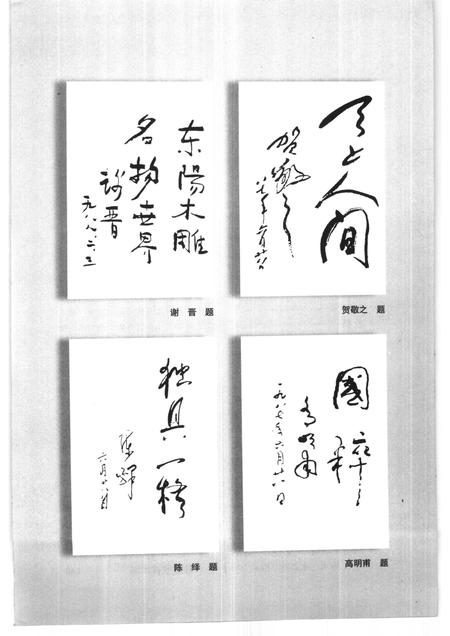 东陽木雕
名扬世界
谢晋
一九八八、六、三
谢 晋 题
天上人间
贺敬之
贺敬之 题
独具一格
陈绎
六月十八日
陈 绎 题
國粹
高明甫
一九八七年六月十八日
高明甫 题